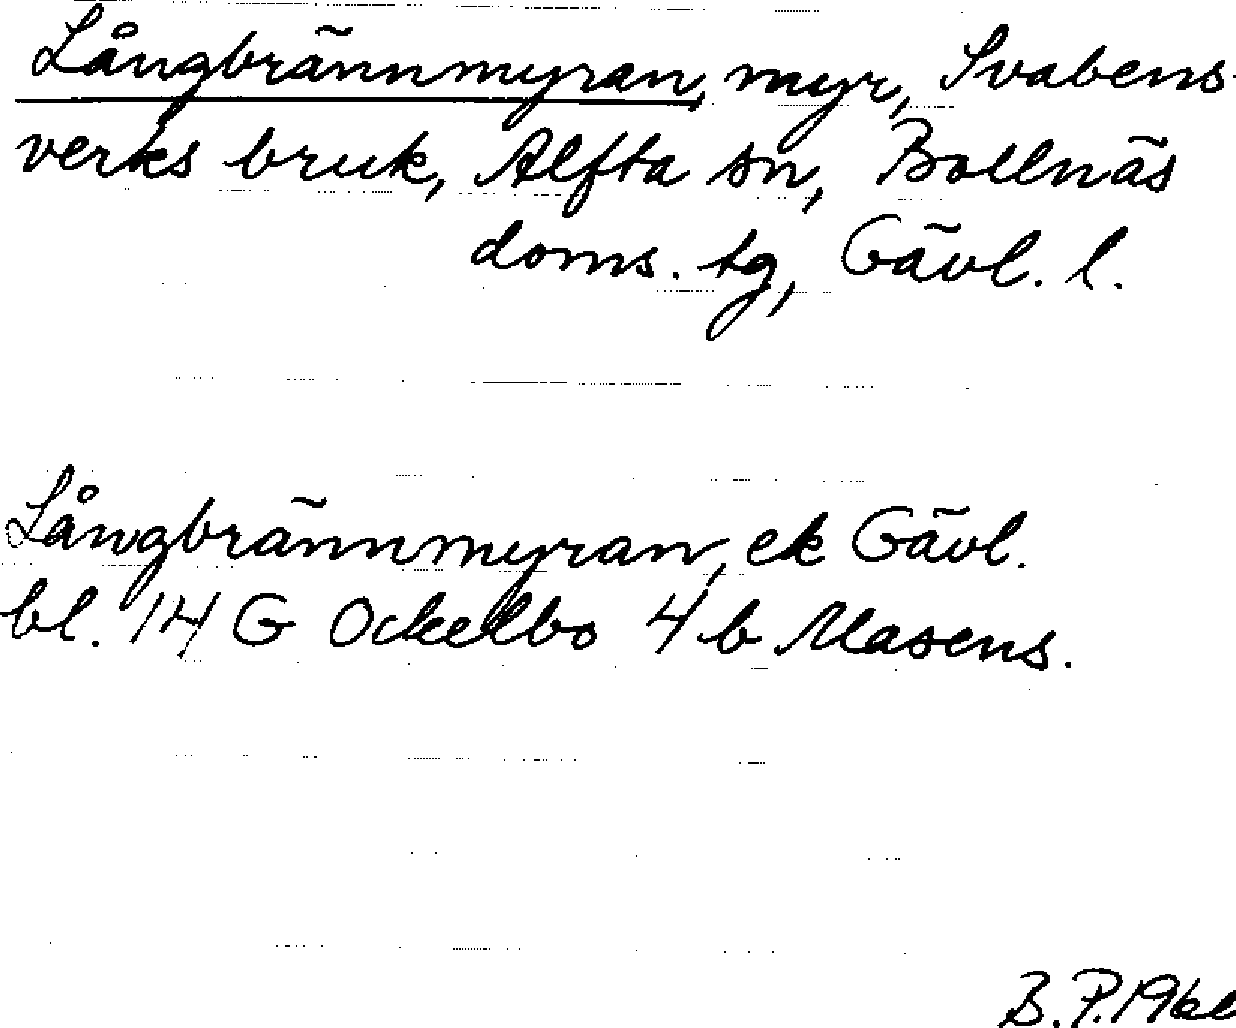 Långbrännmyran, myr, Svabens-
verks bruk, Alfta sn, Bollnäs
doms. tg, Gävl. l.
Långbrännmyran, ek Gävl.
bl. 14 G Ockelbo 4 b Masens.
B. P.